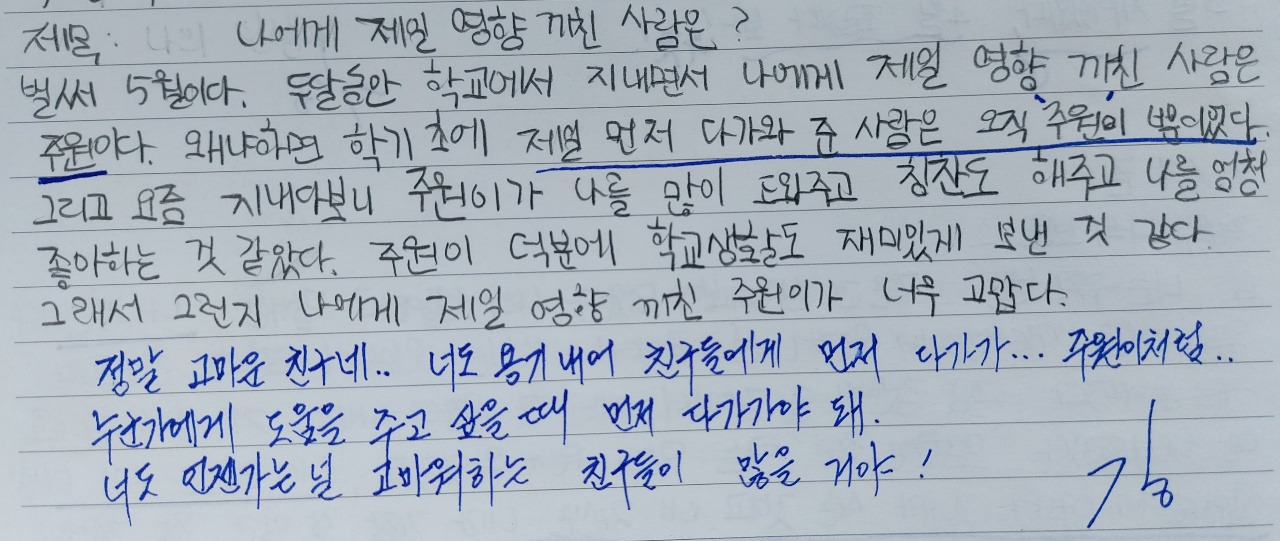 제목: 나에게 제일 영향 끼친 사람은?
벌써 5월이다. 두달동안 학교에서 지내면서 나에게 제일 영향 끼친 사람은
주원이다. 왜냐하면 학기 초에 제일 먼저 다가와 준 사람은 오직 주원이 뿐이었다.
그리고 요즘 지내다보니 주원이가 나를 많이 도와주고 칭찬도 해주고 나를 엄청
좋아하는 것 같았다. 주원이 덕분에 학교생활도 재미있게 보낸 것 같다.
그래서 그런지 나에게 제일 영향 끼친 주원이가 너무 고맙다.
정말 고마운 친구네.. 너도 용기내어 친구들에게 먼저 다가가... 주원이처럼..
누군가에게 도움을 주고 싶을 때 먼저 다가가야 돼.
너도 언젠가는 널 고마워하는 친구들이 많을 거야!